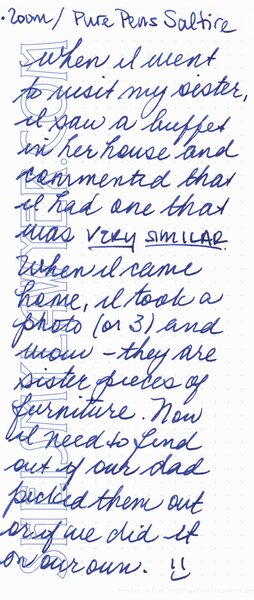 .200m / Pure Pens Saltire
When I went
to visit my sister,
I saw a buffet
in her house and
commented that
I had one that
was VERY SIMILAR.
When I came
home, I took a
photo (or 3) and
wow - they are
sister pieces of
furniture. Now
I need to find
out if our dad
picked them out
or if we did it
on our own. :)